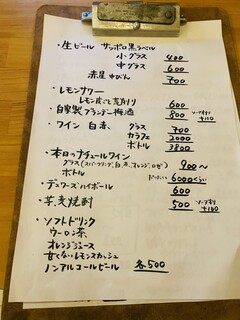 ・生ビール サッポロ黒ラベル
小グラス 400
中グラス 600
赤星 中びん 700
・レモンサワー
レモン皮ごと荒削り 600
・自家製ブランデー梅酒 800 ソーダ割り+100
・ワイン 白・赤、グラス 700
カラフェ 2000
ボトル 3800
・本日のナチュールワイン
グラス(スパークリング、白、赤、オレンジ、ロゼ) 900〜
ボトル だいたい6000くらい
・デュワーズハイボール 600
・芋、麦焼酎 500 ソーダ割り+100
・ソフトドリンク
ウーロン茶
オレンジジュース
甘くないレモンスカッシュ
ノンアルコールビール 各500